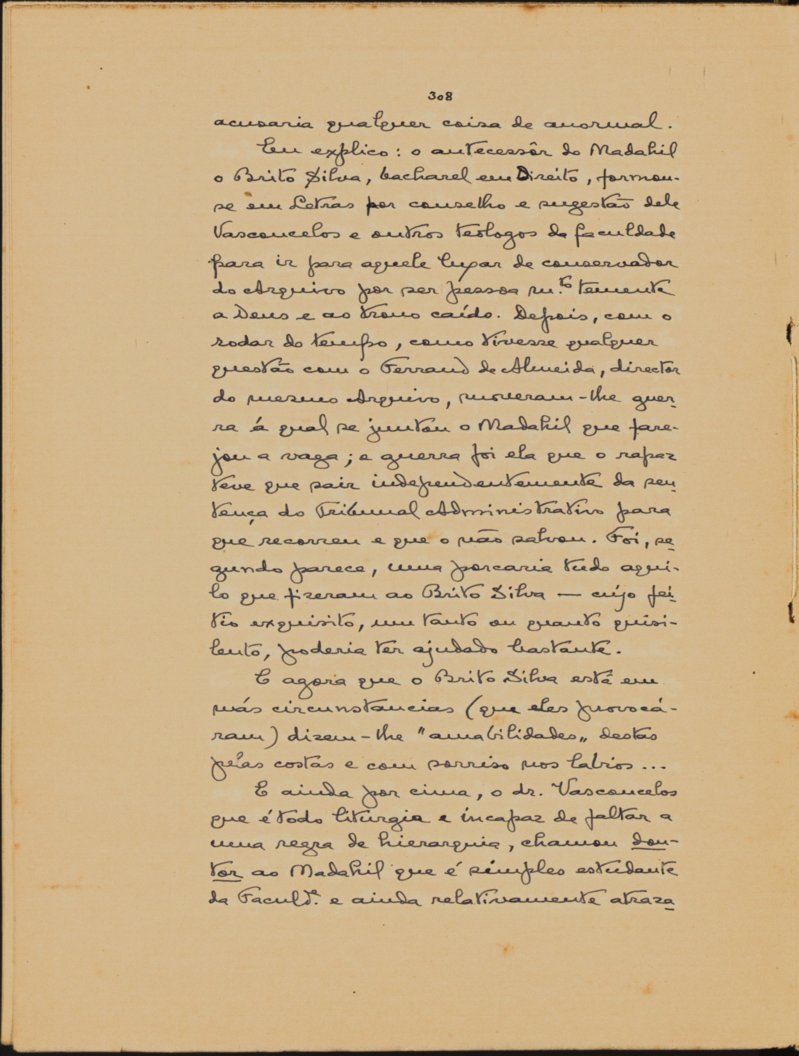 308
acusaria qualquer coisa de anormal.
Eu explico: o antecessôr do Madahil
o Brito Silva, bacharel em Direito, formou-
se em Letras por conselho e sugestão dele
Vasconcelos e outros teologos da faculdade
para ir para aquele lugar de conservador
do Arquivo por ser pessoa m.to temente
a Deus e ao trono caído. Depois, com o
rodar do tempo, como tivesse qualquer
questão com o Ferrand de Almeida, director
do mesmo Arquivo, moveram-lhe guer-
ra á qual se juntou o Madahil que fare-
jou a vaga; e guerra foi ela que o rapaz
teve que sair independentemente da sen-
tença do Tribunal Administrativo para
que recorreu e que o não salvou. Foi, se-
gundo parece, uma porcaria tudo aqui-
lo que fizeram ao Brito Silva — cujo fei-
tio exquisito, um tanto ou quanto quisi-
lento, poderia ter ajudado bastante.
E agora que o Brito Silva está em
más circunstancias (que eles provocá-
ram) dizem-lhe "amabilidades„ destas
pelas costas e com sorriso nos labios ...
E ainda por cima, o dr. Vasconcelos
que é todo liturgia e incapaz de faltar a
uma regra de hierarquia, chamou dou-
tor ao Madahil que é simples estudante
da Faculd.e e ainda relativamente atraza-